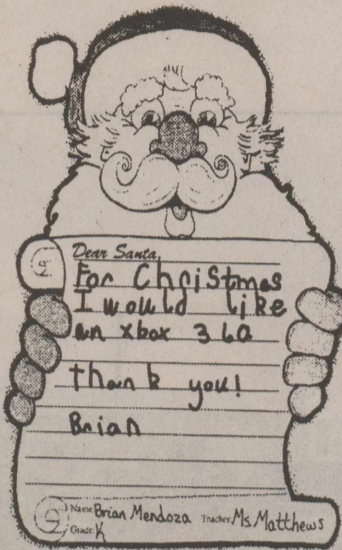 Dear Santa,
For Christmas
I would like
an xbox 360
thank you!
Brian
Name: Brian Mendoza Teacher: Ms. Matthews
Grade: K